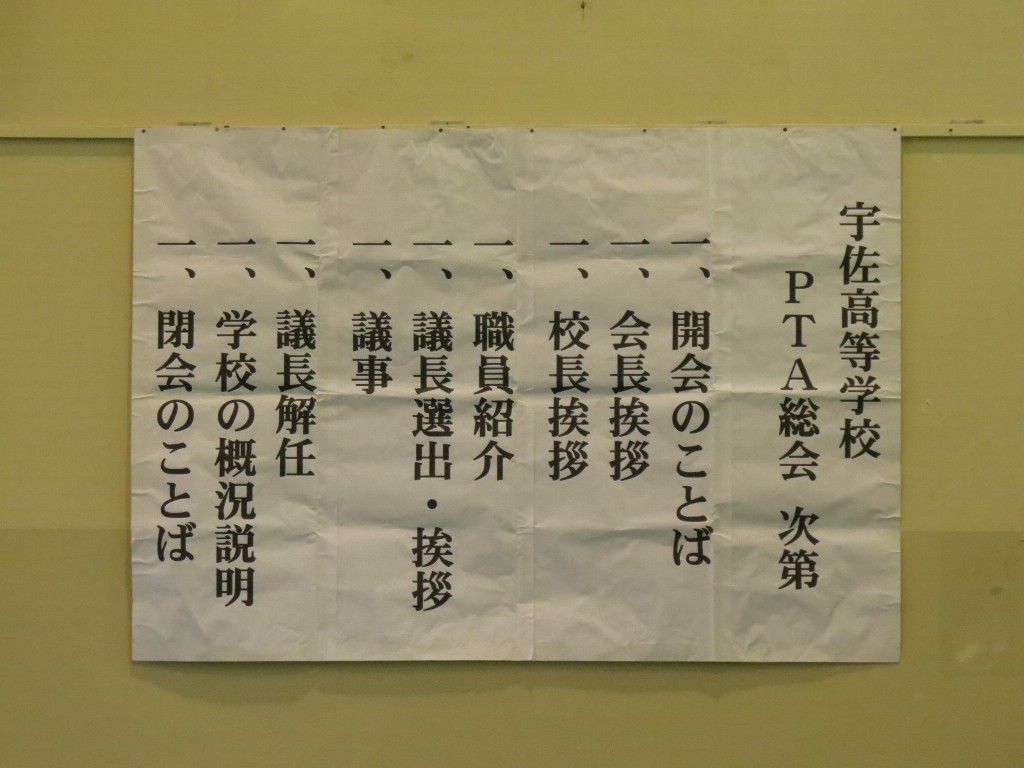 宇佐高等学校
PTA総会 次第
一、開会のことば
一、会長挨拶
一、校長挨拶
一、職員紹介
一、議長選出・挨拶
一、議事
一、議長解任
一、学校の概況説明
一、閉会のことば